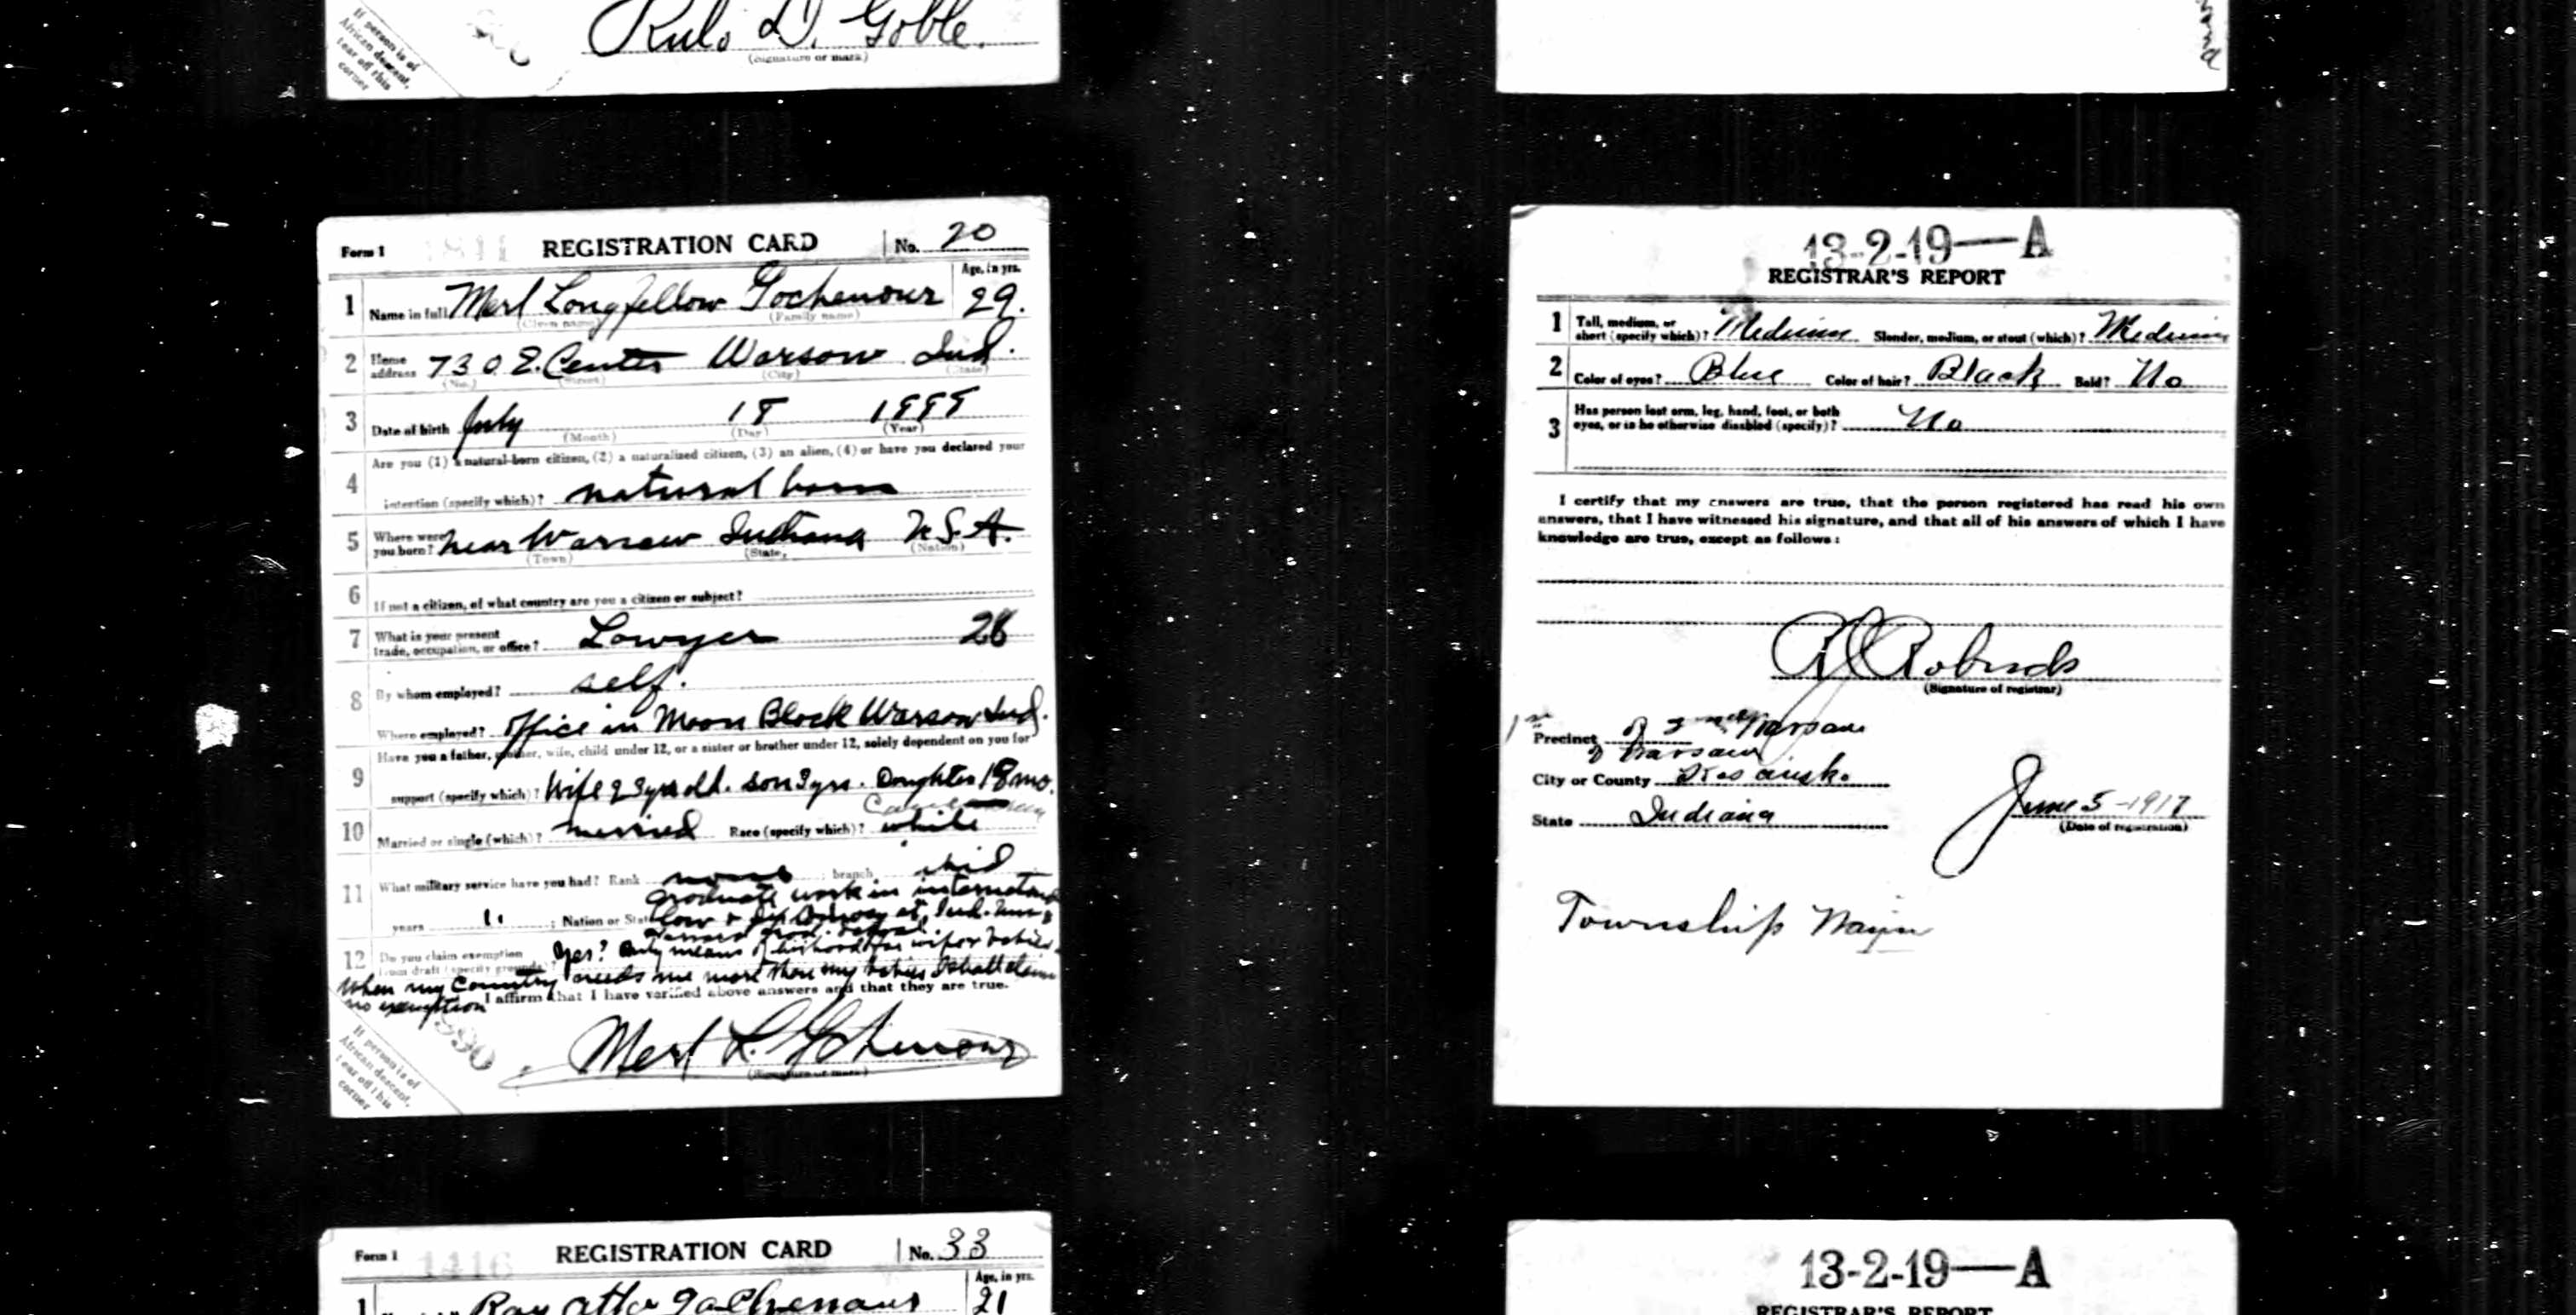 If person is of
African descent,
tear off this
corner
Rulo D. Goble.
(Signature or mark)
Form 1 REGISTRATION CARD No. 20
1 Name in full Merl Longfellow Gochenour Age, in yrs. 29.
(Given name) (Family name)
2 Home address 730 E. Center Warsaw Ind.
(No.) (Street) (City) (State)
3 Date of birth July 18 1888
(Month) (Day) (Year)
4 Are you (1) a natural-born citizen, (2) a naturalized citizen, (3) an alien, (4) or have you declared your
intention (specify which)? natural born
5 Where were you born? near Warsaw Indiana U.S.A.
(Town) (State) (Nation)
6 If not a citizen, of what country are you a citizen or subject?
7 What is your present trade, occupation, or office? Lawyer 28
8 By whom employed? self.
Where employed? office in Moon Block Warsaw Ind.
9 Have you a father, mother, wife, child under 12, or a sister or brother under 12, solely dependent on you for
support (specify which)? Wife 23 yrs old. son 3 yrs. Daughter 18 mo.
10 Married or single (which)? married Race (specify which)? white
11 What military service have you had? Rank none ; branch did
graduate work in international
years " ; Nation or State law & diplomacy at Ind. Univ &
Harvard grad. school.
12 Do you claim exemption from draft (specify grounds)? Yes? Only means of livelihood for wife & babies.
When my Country needs me more than my babies I shall claim
no exemption
I affirm that I have verified above answers and that they are true.
Merl L. Gochenour
(Signature or mark)
If person is of
African descent,
tear off this
corner
Form 1 1416 REGISTRATION CARD No. 33
1 Ray Gochenour Age, in yrs. 21
13-2-19—A
REGISTRAR'S REPORT
1 Tall, medium, or short (specify which)? Medium Slender, medium, or stout (which)? Medium
2 Color of eyes? Blue Color of hair? Black Bald? No
3 Has person lost arm, leg, hand, foot, or both
eyes, or is he otherwise disabled (specify)? No
I certify that my answers are true, that the person registered has read his own
answers, that I have witnessed his signature, and that all of his answers of which I have
knowledge are true, except as follows:
(Signature of registrar)
Precinct of Warsaw
of Warsaw
City or County Kosciusko
State Indiana
June 5-1917
(Date of registration)
Township Wayne
13-2-19—A
REGISTRAR'S REPORT